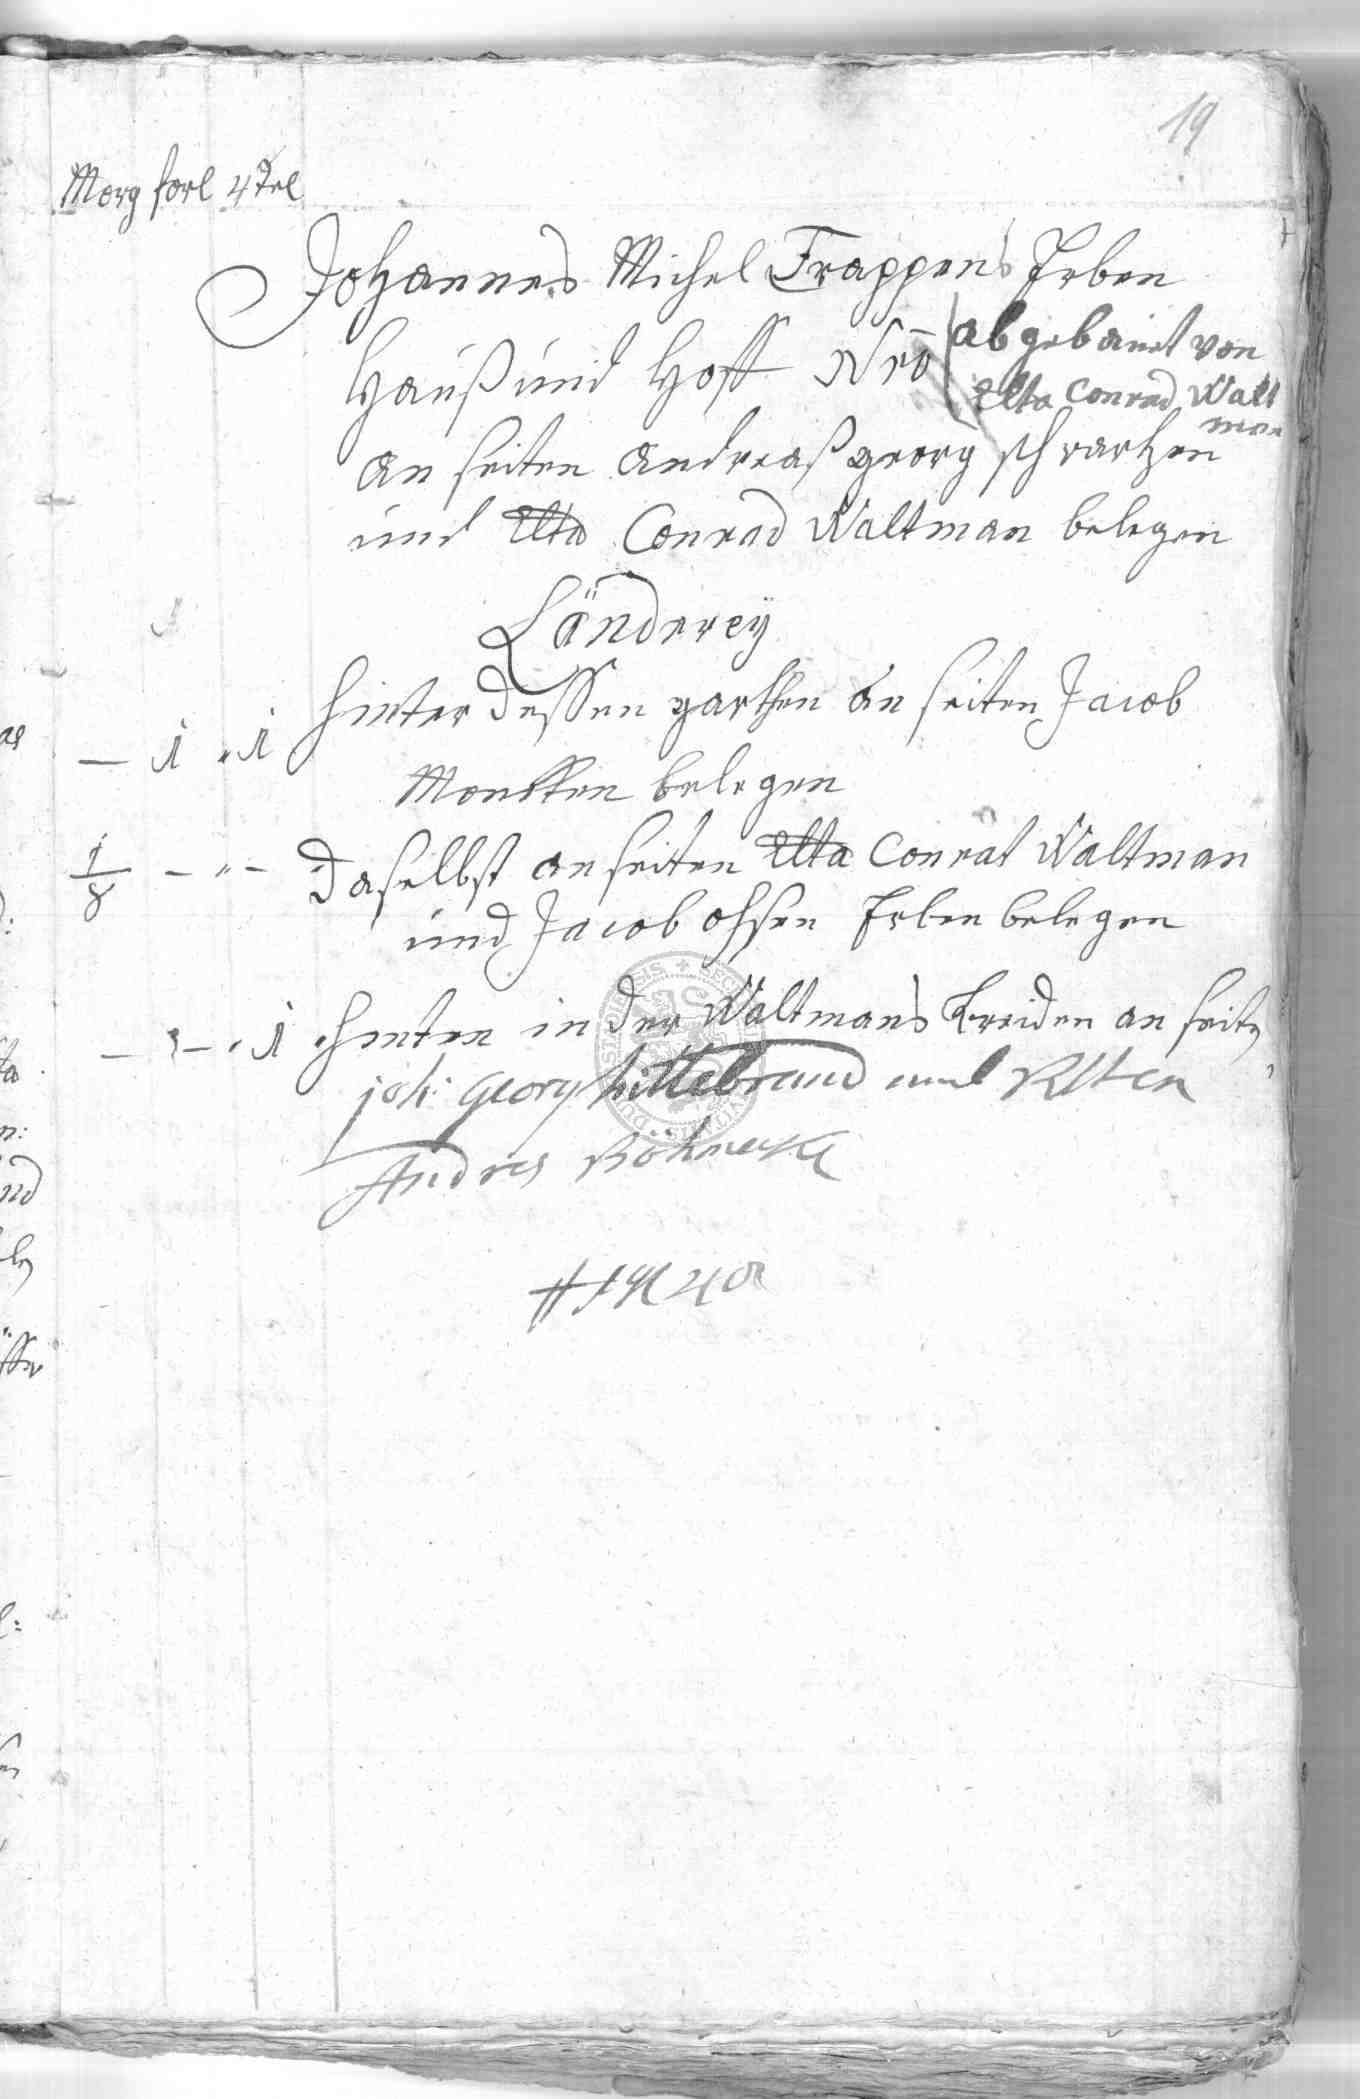 19
Morg forl 4tel
Johannes Michel Trappens Erben
Hauß und Hoff Nro abgebauet von
Elta Conrad Walt
man
an seiten Andreaß georg schwartzen
und Elta Conrad Waltman belegen
Länderey
— 1 " 1 hinter dessen garthen an seiten Jacob
belegen
1/8 — " — daselbst an seiten Elta Conrat Waltman
und Jacob ohsen Erben belegen
hinten in der Waltmans an seiten
joh: georg hillebrand und
Andres Böhneke